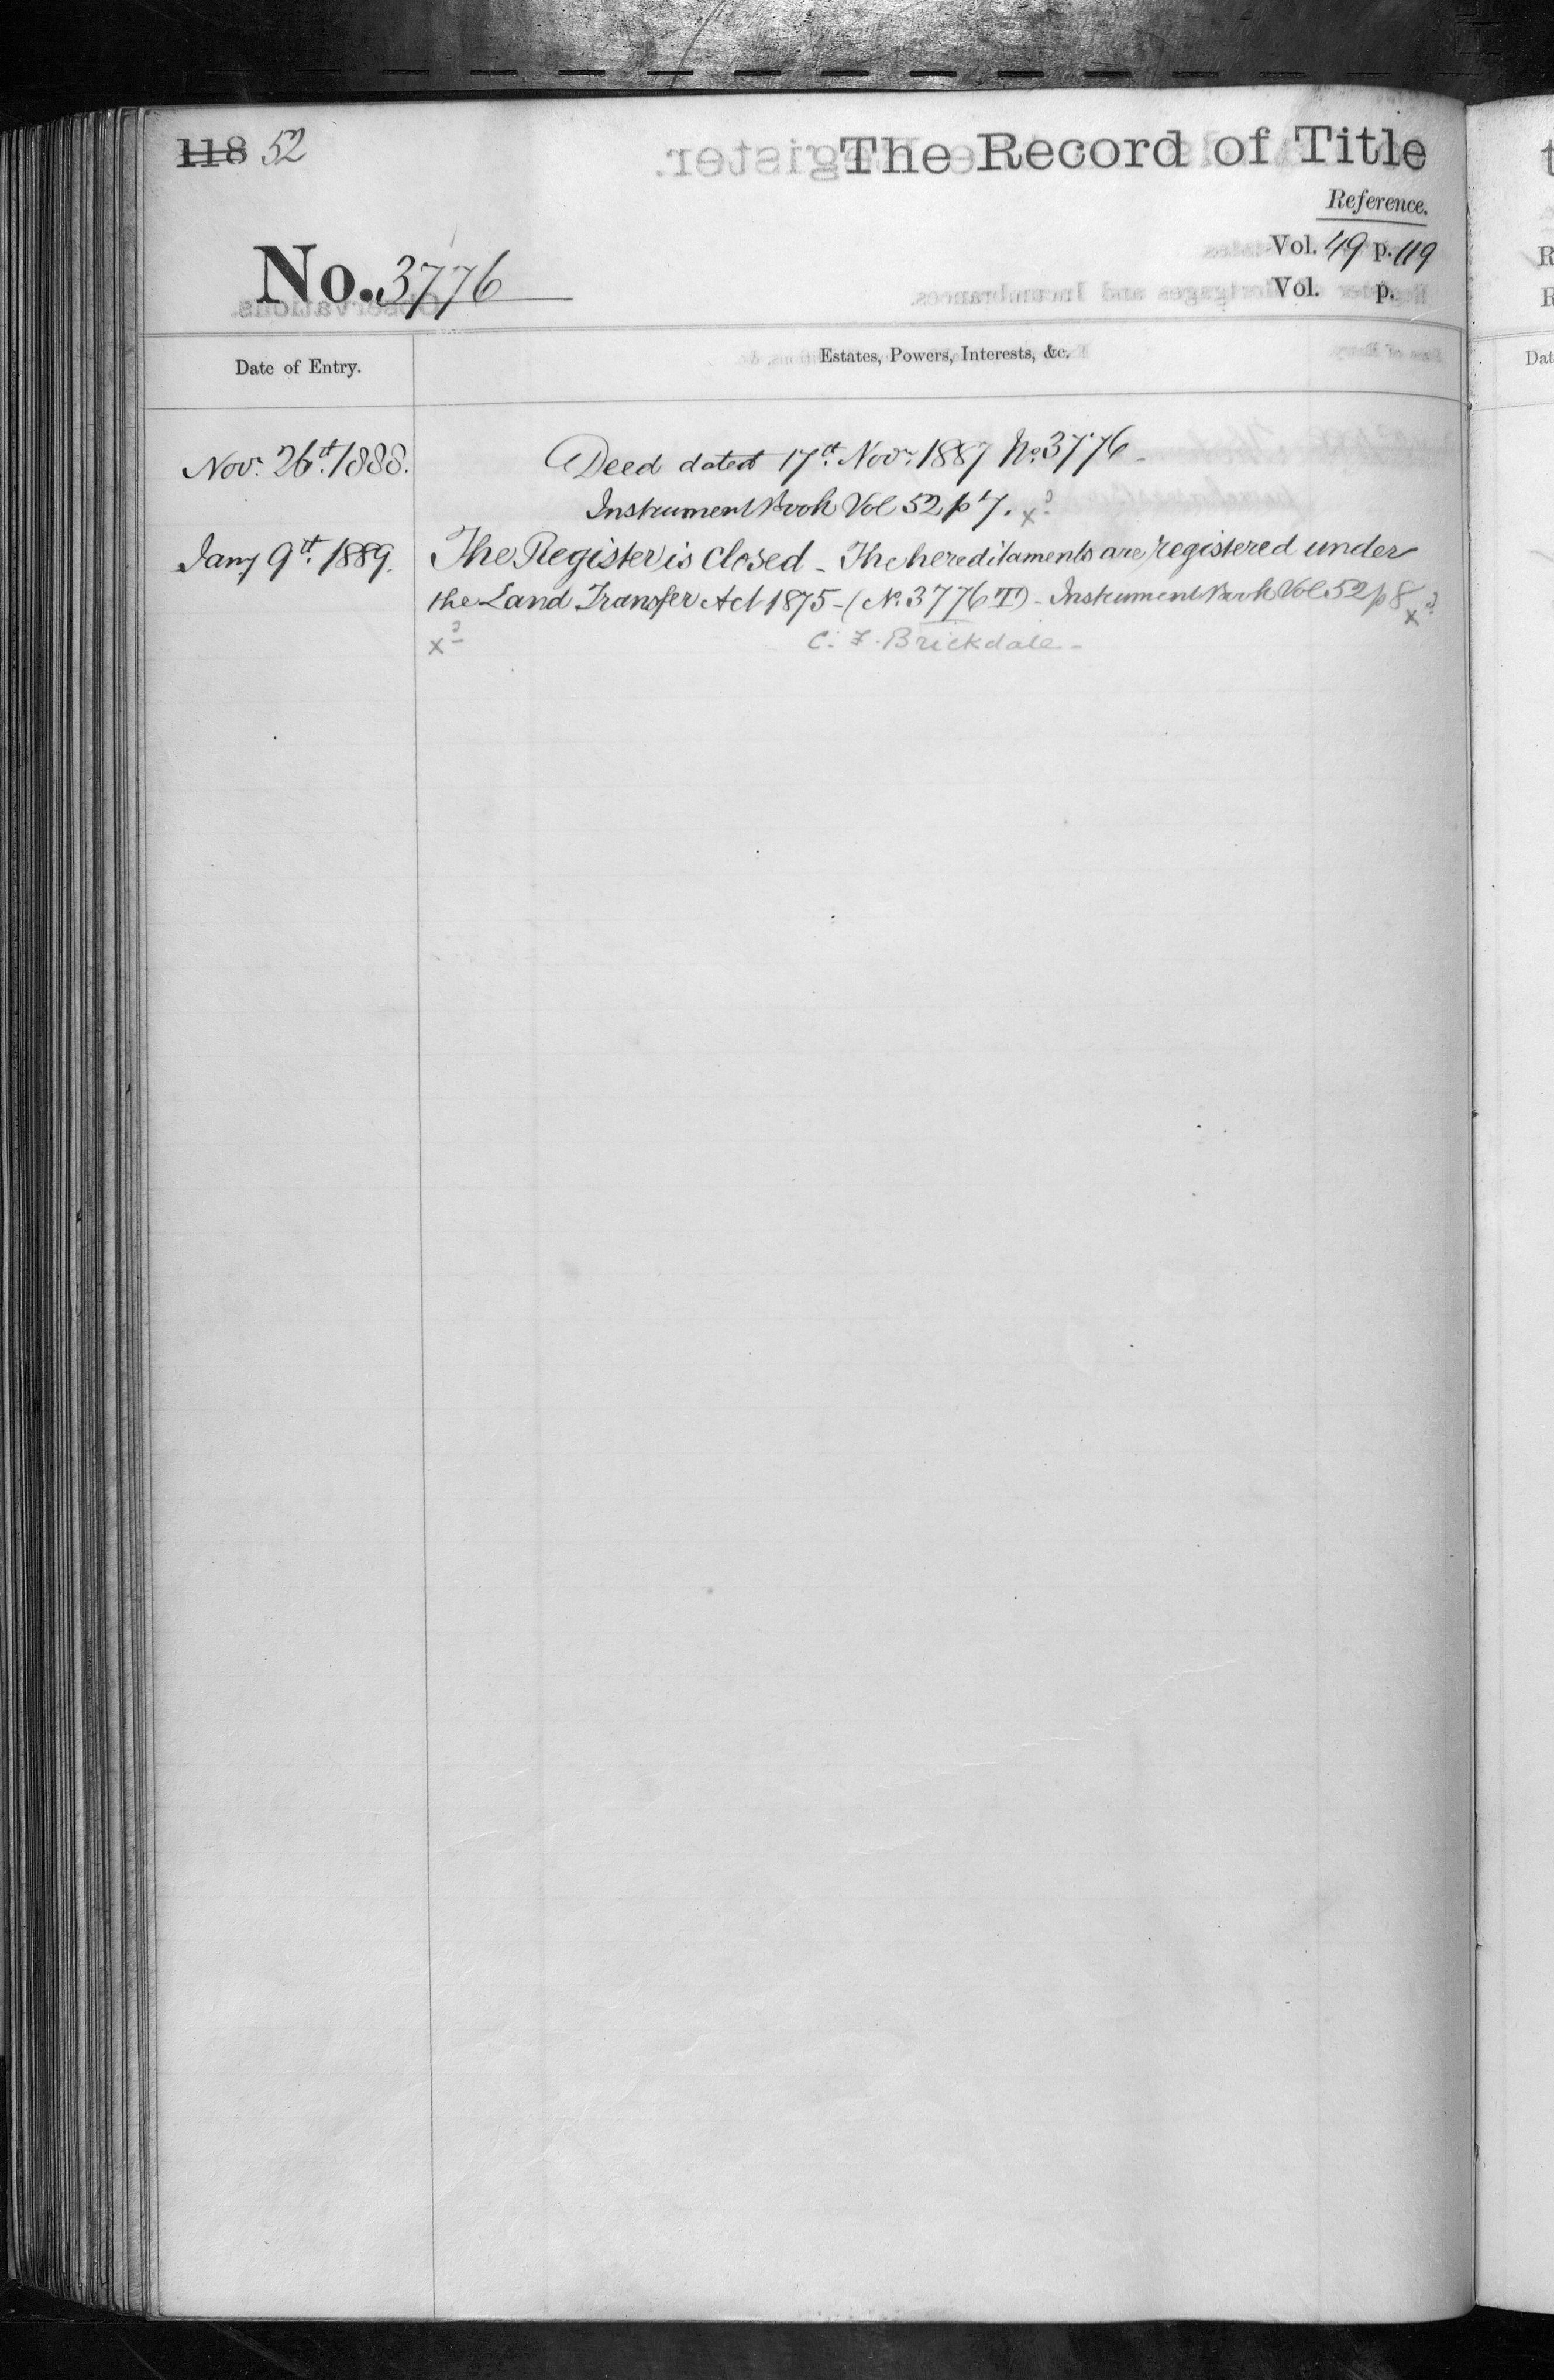 118 52
The Record of Title
Reference.
Vol. 49 p. 119
Vol. p.
No. 3776
Date of Entry.
Estates, Powers, Interests, &c.
Nov. 26th. 1888.
Deed dated 17th. Novr. 1887 No. 3776
Instrument Book Vol 52 p 7. x
Jany 9th. 1889.
The Register is Closed - The hereditaments are registered under
the Land Transfer Act 1875 - (No. 3776 T) - Instrument Book Vol 52 p 8 x
x
C. F. Brickdale -